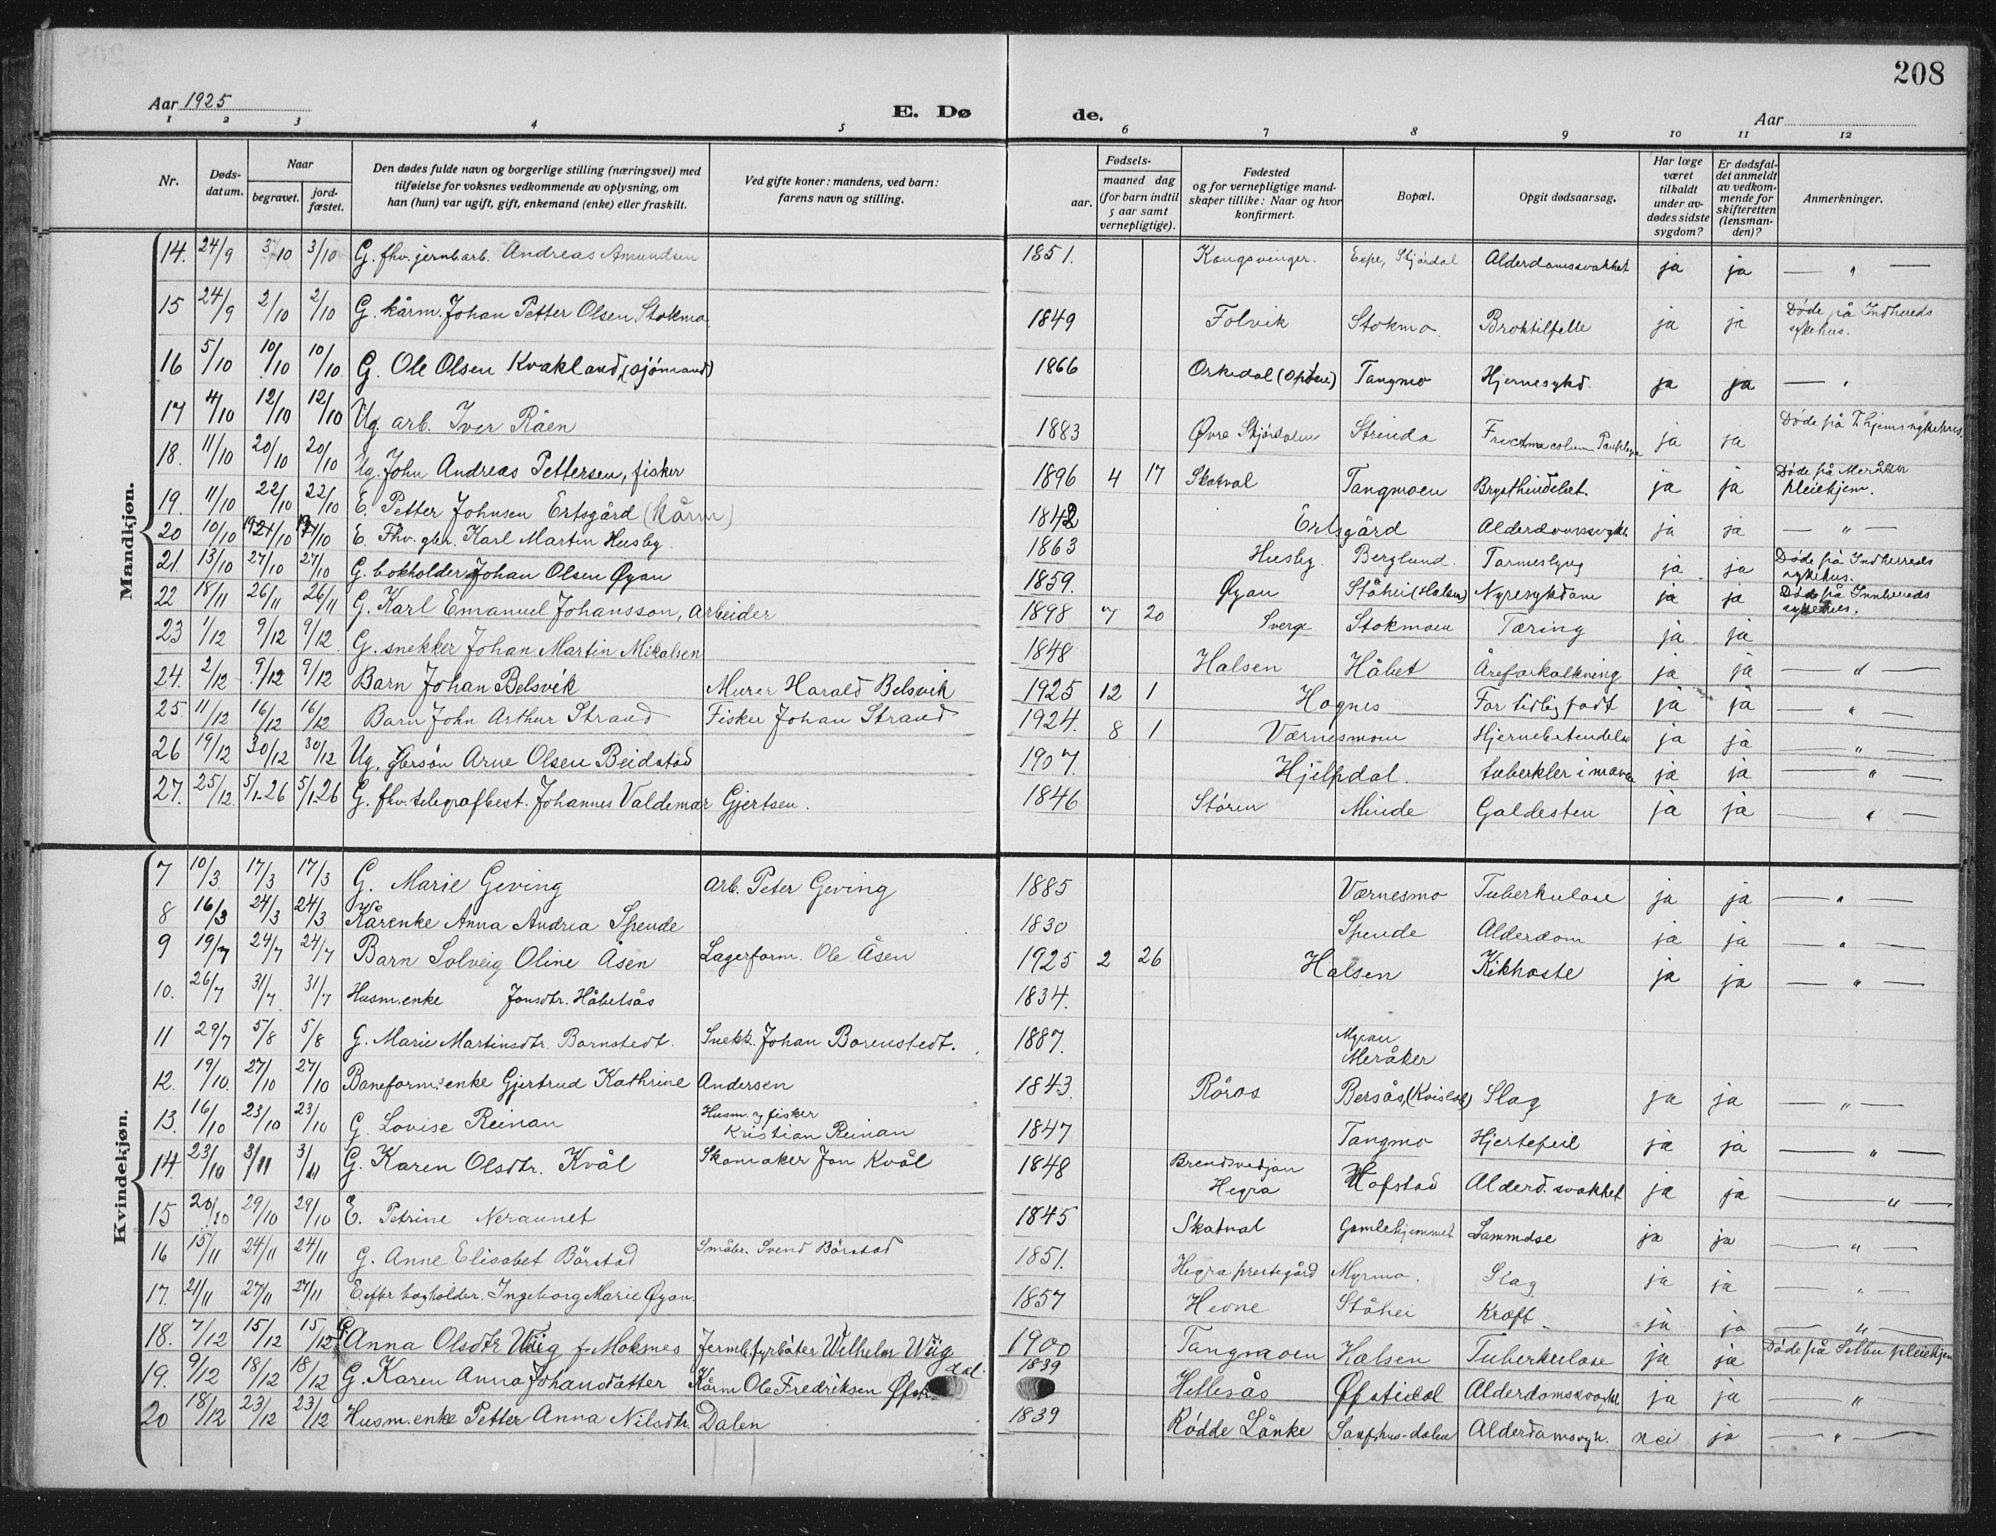 208
Aar 1925 E. Dø de. Aar
1 2 3 4 5 6 7 8 9 10 11 12
Nr. Døds-datum. Naar begravet. jord-fæstet. Den dødes fulde navn og borgerlige stilling (næringsvei) med tilføielse for voksnes vedkommende av oplysning, om han (hun) var ugift, gift, enkemand (enke) eller fraskilt. Ved gifte koner: mandens, ved barn: farens navn og stilling. Fødsels- aar. maaned dag (for barn indtil 5 aar samt vernepligtige). Fødested og for vernepligtige mand-skaper tillike: Naar og hvor konfirmert. Bopæl. Opgit dødsaarsag. Har læge været tilkaldt under av-dødes sidste sygdom? Er dødsfal-det anmeldt av vedkom-mende for skifteretten (lensman-den)? Anmerkninger.
Mandkjøn.
14. 24/9 3/10 3/10 G. fhv. jernbarb. Andreas Amundsen 1851. Kongsvinger. Stjørdal Alderdomssvakhet ja ja — " —
15 24/9 2/10 2/10 G. kårm. Johan Petter Olsen Stokmo 1849 Folvik Stokmo Broktilfelle ja ja Døde på Indhereds sykehus.
16 5/10 10/10 10/10 G. Ole Olsen Kvakland, (sjømand) 1866 Orkedal Tangmo Hjernesykd. ja ja — "
17 4/10 12/10 12/10 Ug. arb. Iver Råen 1883 Øvre Stjørdalen Strinda ja ja Døde på T.hjems sykehus.
18. 11/10 20/10 20/10 Ug. John Andreas Pettersen, fisker 1896 4 17 Skatval Tangmoen Brysthindebet. ja ja Døde på Meråker pleiehjem.
19. 11/10 22/10 22/10 E. Petter Johnsen Ertsgård (kårm) 1842 Ertsgård Alderdomssvakh. ja ja — " —
20 10/10 E. Fhv. gbr. Karl Martin Husby. 1863 Husby. Berglund. Tarmeslyng ja ja Døde på Indherreds sykehus.
21. 13/10 27/10 27/10 G. bokholder Johan Olsen Øyan 1859. Øyan Ståhei (Halsen) Nyresykdom ja ja Døde på Innhereds sykehus.
22 18/11 26/11 26/11 G. Karl Emanuel Johansson, arbeider 1898 7 20 Sverge Stokmoen Tæring ja ja
23 1/12 9/12 9/12 G. snekker Johan Martin Mikalsen 1848 Halsen Håbet Åreforkalkning ja ja — " —
24. 2/12 9/12 9/12 Barn Johan Belsvik Murer Harald Belsvik 1925 12 1 Hognes For tidlig født ja ja — " —
25 11/12 16/12 16/12 Barn John Arthur Strand Fisker Johan Strand 1924. 8 1 Værnesmoen Hjernebetendelse ja ja — " —
26 19/12 30/12 30/12 Ug. gbrsøn Arne Olsen Beidstad 1907. Hjelpdal. tuberkler i maven ja ja — " —
27. 25/12. 5/1-26 5/1-26 G. fhv. telegrafbest. Johannes Valdemar Gjertsen. 1846 Støren Minde Galdesten ja ja — " —
Kvindekjøn.
7 10/3 17/3 17/3 G. Marie Geving arb. Peter Geving 1885 Værnesmo Tuberkulose ja ja — " —
8 16/3 24/3 24/3 Kårenke Anna Andrea Spende 1830 Spende Alderdom ja ja — " —
9 19/7 24/7 24/7 Barn Solveig Oline Åsen Lagerform. Ole Åsen 1925 2 26 Halsen Kikhoste ja ja — " —
10. 26/7 31/7 31/7 Husm.enke Jonsdtr. Håbetsås 1834.
11 29/7 5/8 5/8 G. Marie Martinsdtr. Barnstedt. Snekk. Johan Borenstedt. 1887. Myran Meråker
12. 19/10. 27/10 27/10 Baneform.enke Gjertrud Kathrine Andersen 1843. Röros Bersås, Slag ja ja — " —
13. 16/10 23/10 23/10 G. Lovise Reinan Husm. og fisker Kristian Reinan 1847 Tangmo Hjertefeil ja ja — " —
14. 23/10 3/11 3/11 G. Karen Olsdtr. Kvål Skomaker Jon Kvål 1848 Hegra Hofstad Alderd. svakhet ja ja — " —
15 20/10 29/10 29/10 E. Petrine Neraunet 1845 Skatval Gamlehjemmet ja ja — " —
16 15/11 24/11 24/11 G. Anne Elisabet Börstad Småbr. Svend Börstad 1851. Hegra prestegård Myrmo. Slag ja ja — " —
17. 21/11 27/11 27/11 E efter bogholder. Ingeborg Marie Øyan. 1857 Hevne Ståhei Kræft ja ja — " —
18. 7/12 15/12 15/12 G. Anna Olsdtr Wiig f. Moksnes Jernb.fyrbøter Wilhelm Wiig 1900 Tangmoen Halsen Tuberkulose ja ja Døde på Selbu pleiehjem
19. 9/12 18/12 18/12 G. Karen Anna Johansdatter Kårm Ole Fredriksen 1839 Hellesås Øfstidal Alderdomssvagh. ja ja "
20 18/12 23/12 23/12 Husm.enke Petter Anna Nilsdtr. Dalen 1839 Rødde Lånke Alderdomssvgh. nei ja — " —